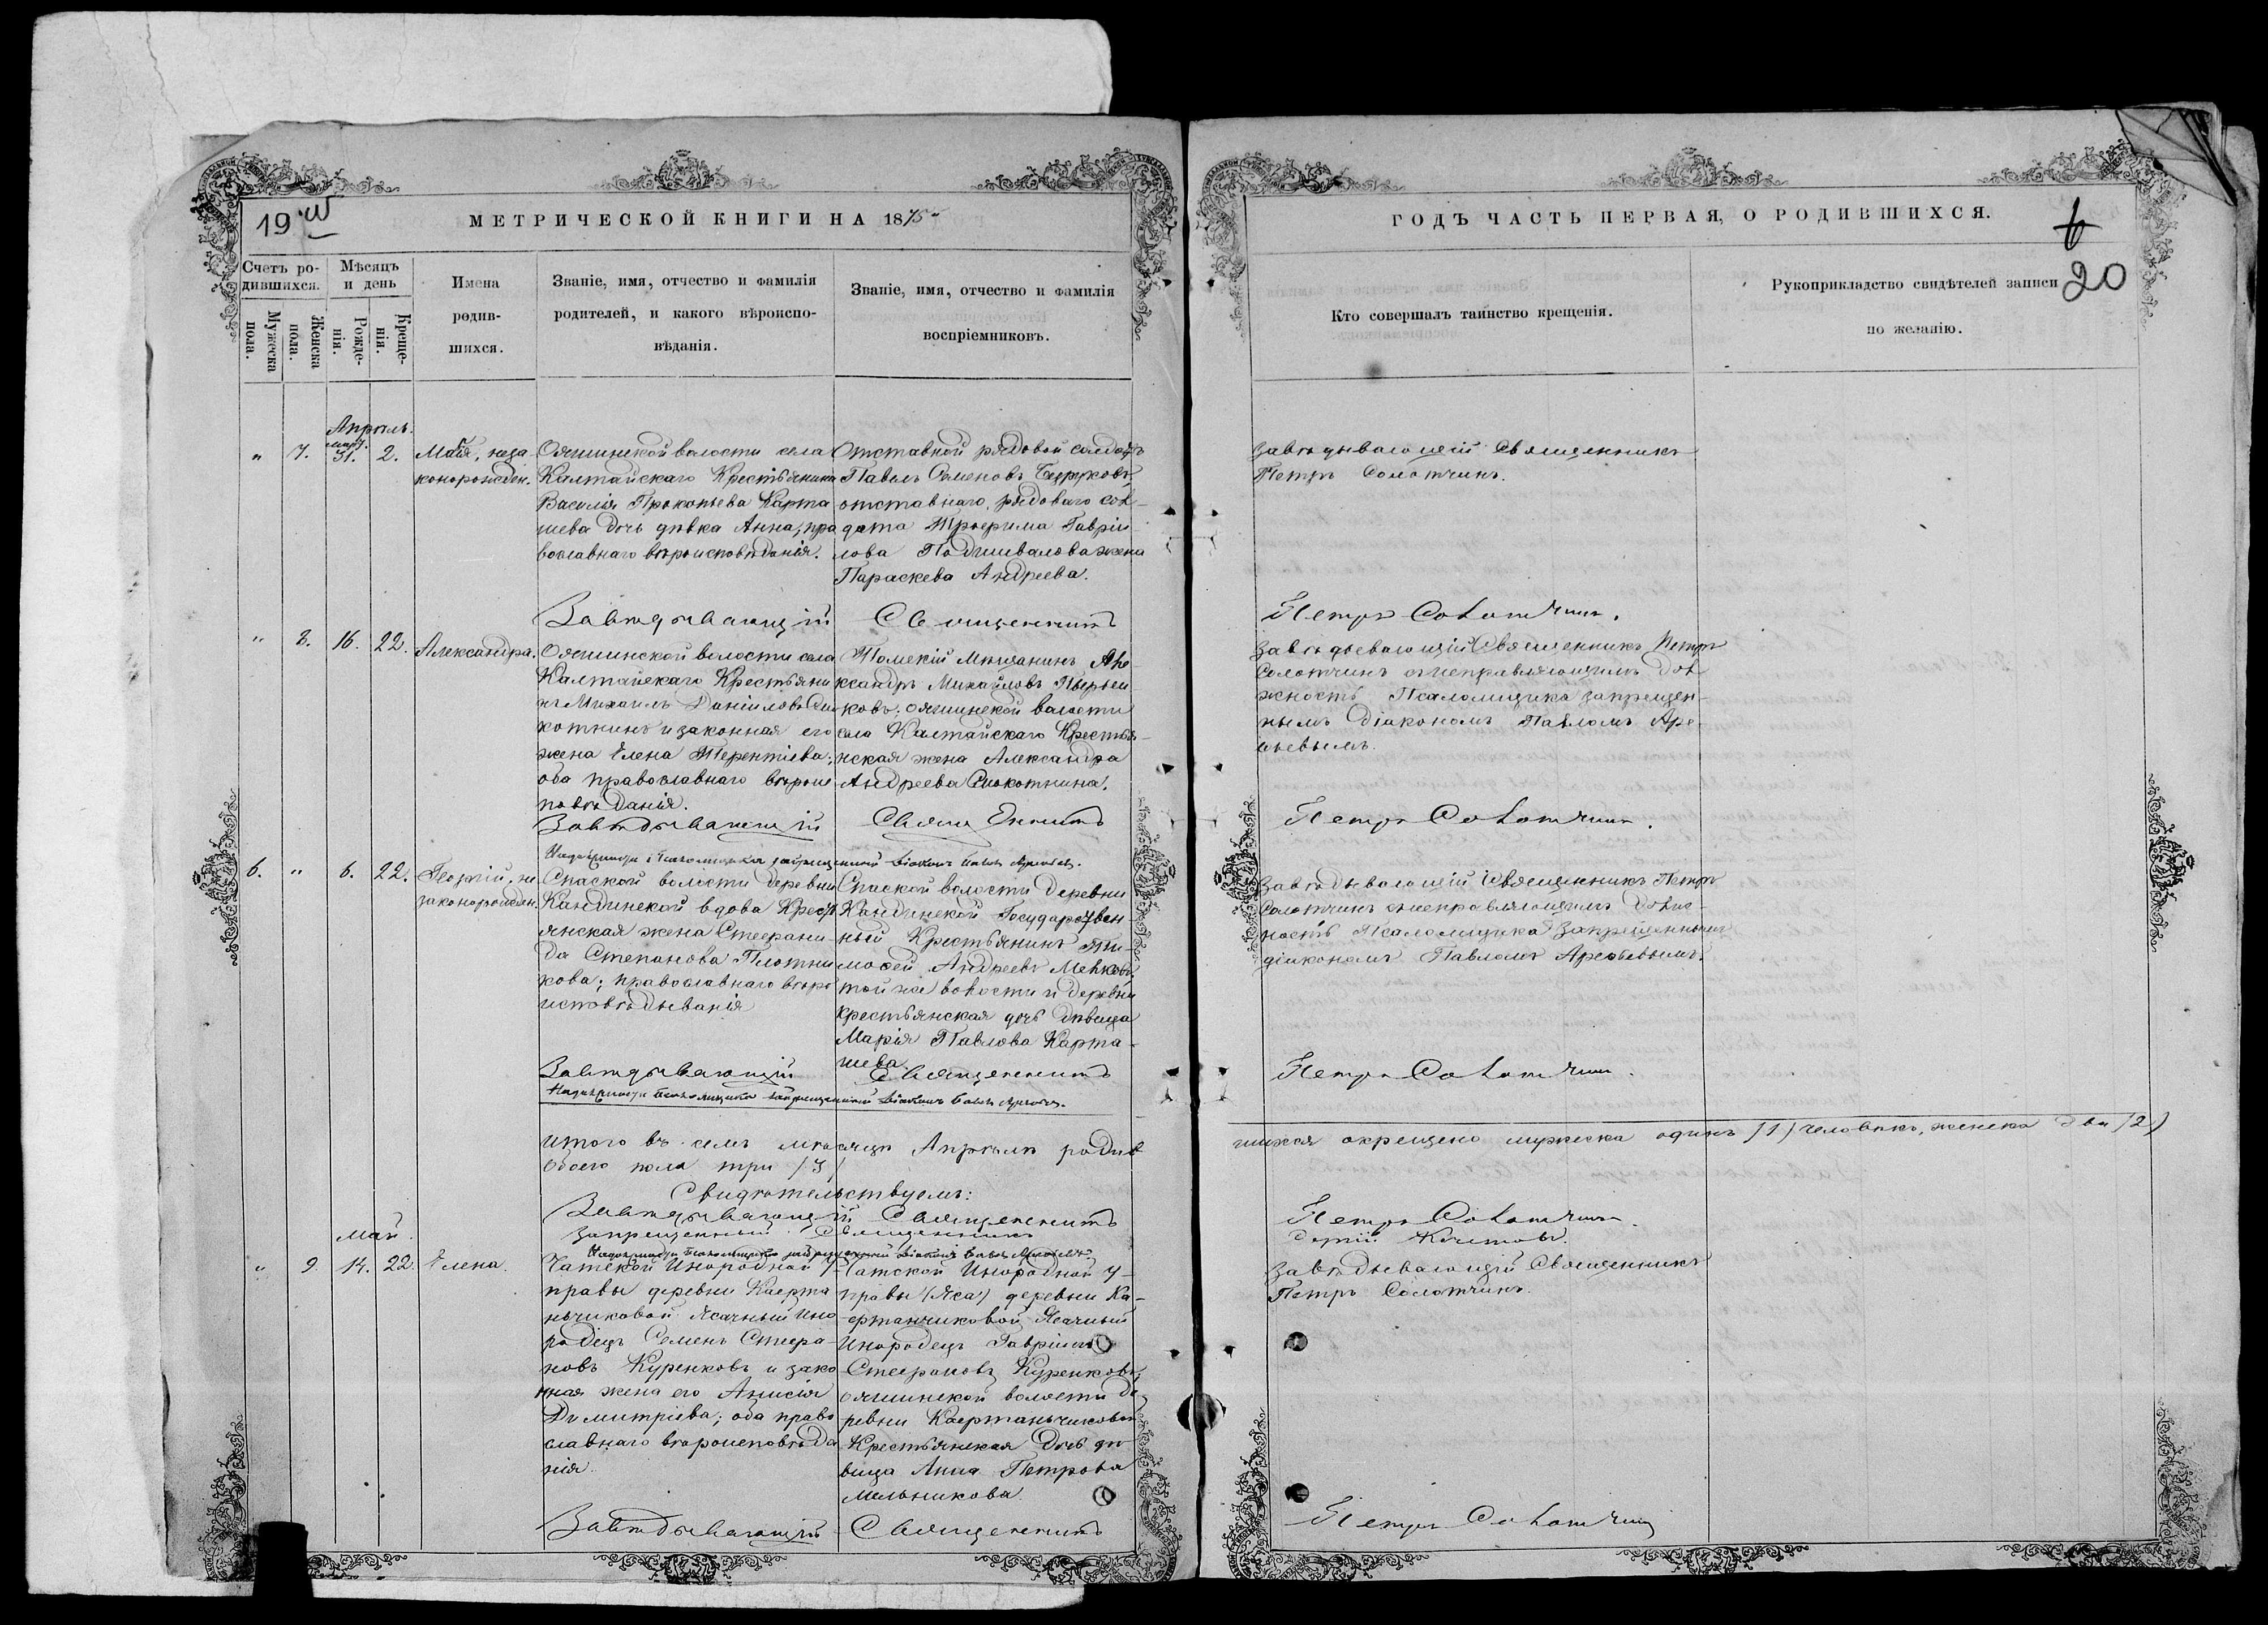 19 об
МЕТРИЧЕСКОЙ КНИГИ НА 1875
Счетъ ро-
дившихся.
Мужеска пола.
Женска пола.
Мѣсяцъ
и день
Рожде-
нія.
Креще-
нія.
Имена
родив-
шихся.
Званіе, имя, отчество и фамилія
родителей, и какого вѣроиспо-
вѣданія.
Званіе, имя, отчество и фамилія
воспріемниковъ.
Апрѣль.
„ 7. март. 31. 2.
незаконорожден.
Ояшинской волости села
Калтайскаго Крестьянина
Василія Прокопьева Карта
шева дочь дѣвка Анна, пра
вославнаго вѣроисповѣданія.
Отставной рядовой солдатъ
Павелъ Семеновъ
отставнаго рядоваго сол-
дата Гаврі-
лова Подшивалова жена
Параскева Андреева.
Завѣдывающій Священникъ
„ 8. 16. 22. Александра.
Ояшинской волости села
Калтайскаго Крестьяни
нъ Михаилъ Даніиловъ Сно
котнинъ и законная его
жена Елена Терентіева;
оба православнаго вѣроис
повѣданія.
Томскій Мѣщанинъ Але
ксандръ Михайловъ
ковъ; Ояшинской волости
села Калтайскаго Крестья-
нская жена Александра
Андреева Снокотнина.
Завѣдывающій Священникъ
Псаломщика запрещенный Діаконъ Павелъ Арефьев.
6. „ 6. 22. Георгій, не
законорожден.
Спаской волости деревни
Кандинской вдова Кресть
янская жена Стефани-
да Степанова Плотни
кова; православнаго вѣро
исповѣдыванія
Спаской волости деревни
Кандинской Государствен-
ный Крестьянинъ Ти-
мофей Андреевъ
той же волости и деревни
крестьянская дочь дѣвица
Марія Павлова Карта-
шева.
Завѣдывающій Священникъ
Псаломщика запрещенный Діаконъ Павелъ Арефьев.
Итого въ семъ мѣсяцѣ Апрѣлѣ родив
обоего пола три /3/
Свидѣтельствуемъ:
Завѣдывающій Священникъ
Запрещенный Священникъ
Псаломщика запрещенный Діаконъ Павелъ Арефьев.
Май.
„ 9 14. 22. Елена.
Чатской Инородной У-
правы деревни Каерта
нчиковой Ясачный Ино
родецъ Семенъ Стефа-
новъ Куренковъ и зако
нная жена его Анисія
Димитріева; оба право
славнаго вѣроисповѣда
нія.
Чатской Инородной У-
правы (Яса) деревни Ка-
ертанчиковой Ясачный
Инородецъ Гавріилъ
Стефановъ Куренковъ,
Ояшинской волости де
ревни Каертанчиковой
Крестьянская дочь дѣ-
вица Анна Петрова
Мельникова.
Завѣдывающій Священникъ
ГОДЪ ЧАСТЬ ПЕРВАЯ, О РОДИВШИХСЯ.
6
20
Кто совершалъ таинство крещенія.
Рукоприкладство свидѣтелей записи
по желанію.
Завѣдывающій Священникъ
Петръ Солотчинъ.
Петръ Солотчинъ.
Завѣдывающій Священникъ Петръ
Солотчинъ съ исправляющимъ дол
жность Псаломщика запрещен-
нымъ діакономъ Павломъ Аре-
фьевымъ.
Петръ Солотчинъ.
Завѣдывающій Священникъ Петръ
Солотчинъ съ исправляющимъ долж-
ность Псаломщика Запрещеннымъ
діакономъ Павломъ Арефьевымъ.
Петръ Солотчинъ.
шихся окрещено мужеска одинъ /1/ человѣкъ, женска два /2/
Петръ Солотчинъ.
Завѣдывающій Священникъ
Петръ Солотчинъ.
Петръ Солотчинъ